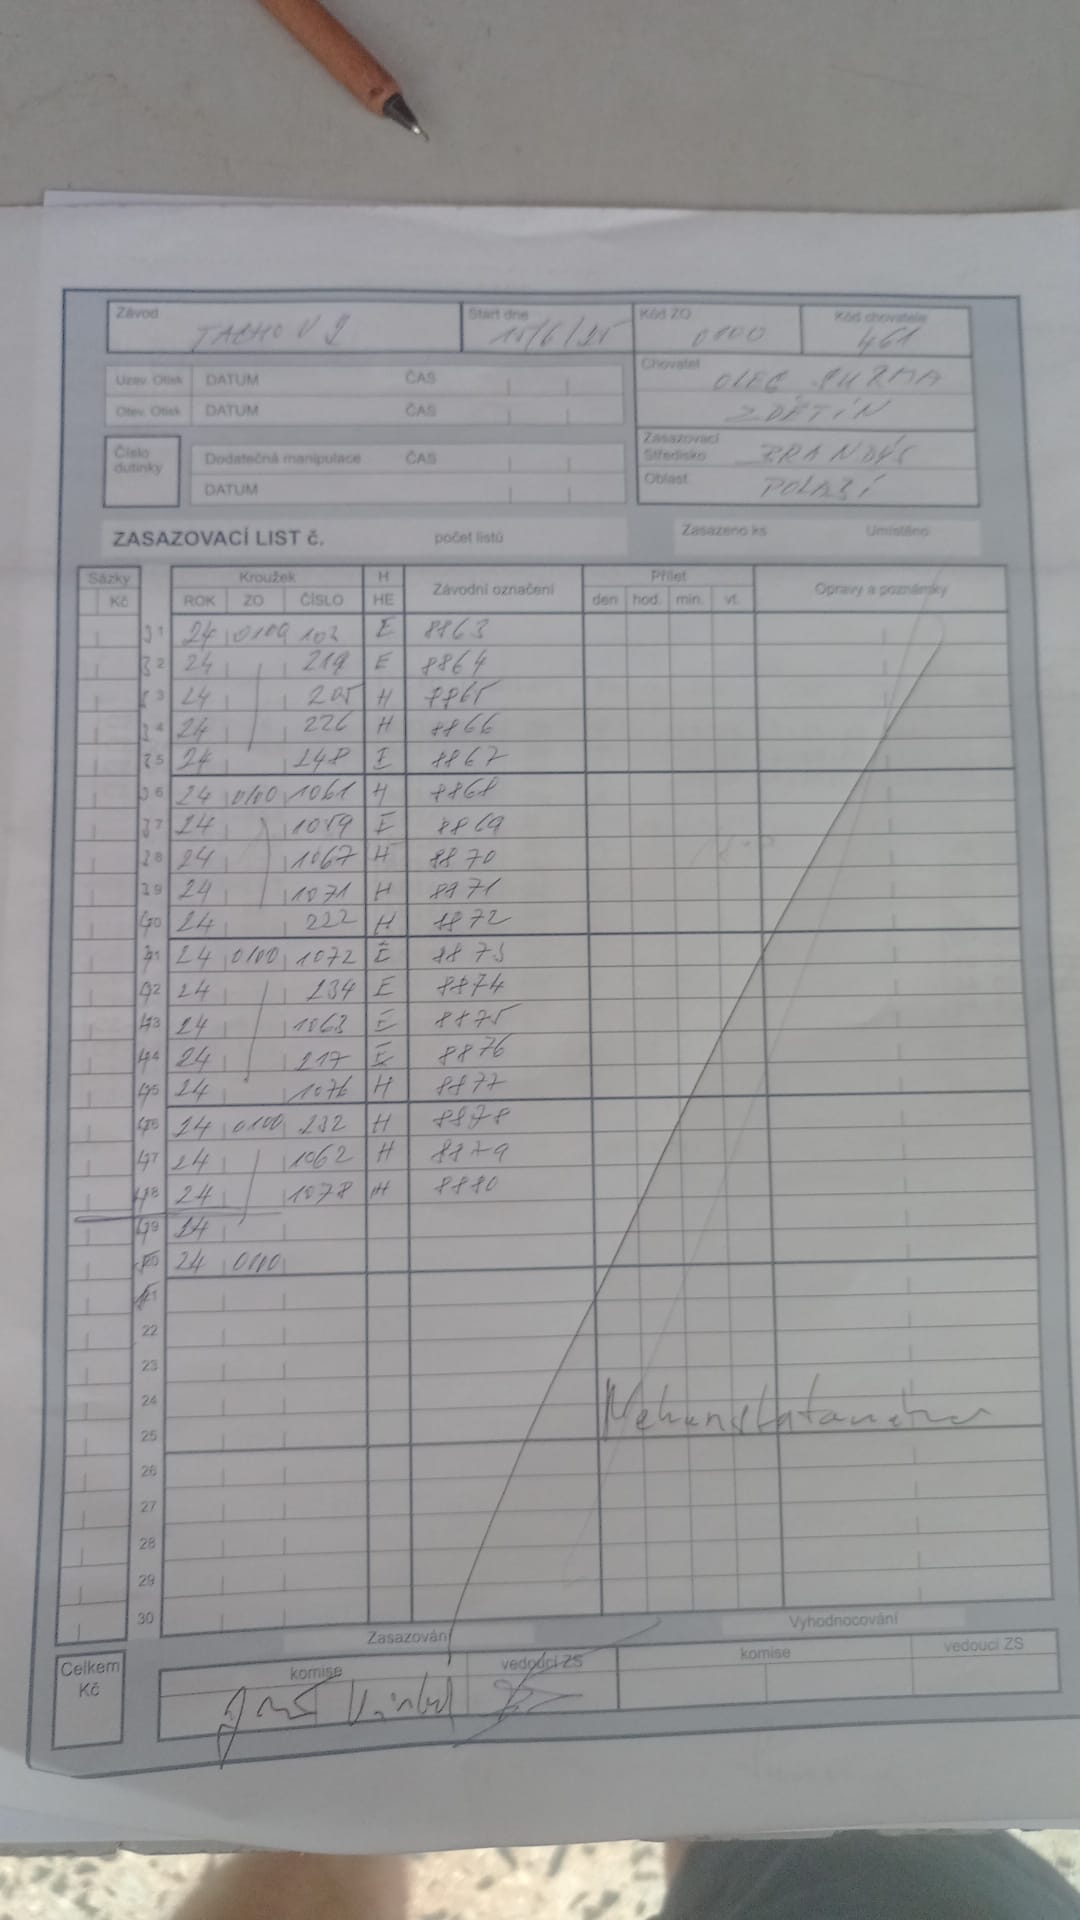 Závod Start dne Kód ZO Kód chovatele
TACHOV 15/6/25 0100 461
Uzav. Otisk DATUM ČAS Chovatel
OLEG
Otev. Otisk DATUM ČAS ZDĚTÍN
Číslo dutinky Dodatečná manipulace ČAS Zasazovací Středisko BRANDÝS
DATUM Oblast POLABÍ
ZASAZOVACÍ LIST č. počet listů Zasazeno ks Umístěno
Sázky Kroužek H Závodní označení Přílet Opravy a poznámky
Kč ROK ZO ČÍSLO HE den hod. min. vt.
31 24 0100 102 E 8863
32 24 219 E 8864
33 24 205 H 8865
34 24 226 H 8866
35 24 248 E 8867
36 24 0100 1061 H 8868
37 24 1059 E 8869
38 24 1067 H 8870
39 24 1071 H 8871
40 24 222 H 8872
41 24 0100 1072 E 8873
42 24 234 E 8874
43 24 1063 E 8875
44 24 217 E 8876
45 24 1076 H 8877
46 24 0100 232 H 8878
47 24 1062 H 8879
48 24 1078 H 8880
49 24
50 24 0100
22
23
24
25
26
27
28
29
30
Zasazování Vyhodnocování
Celkem Kč komise vedoucí ZS komise vedoucí ZS